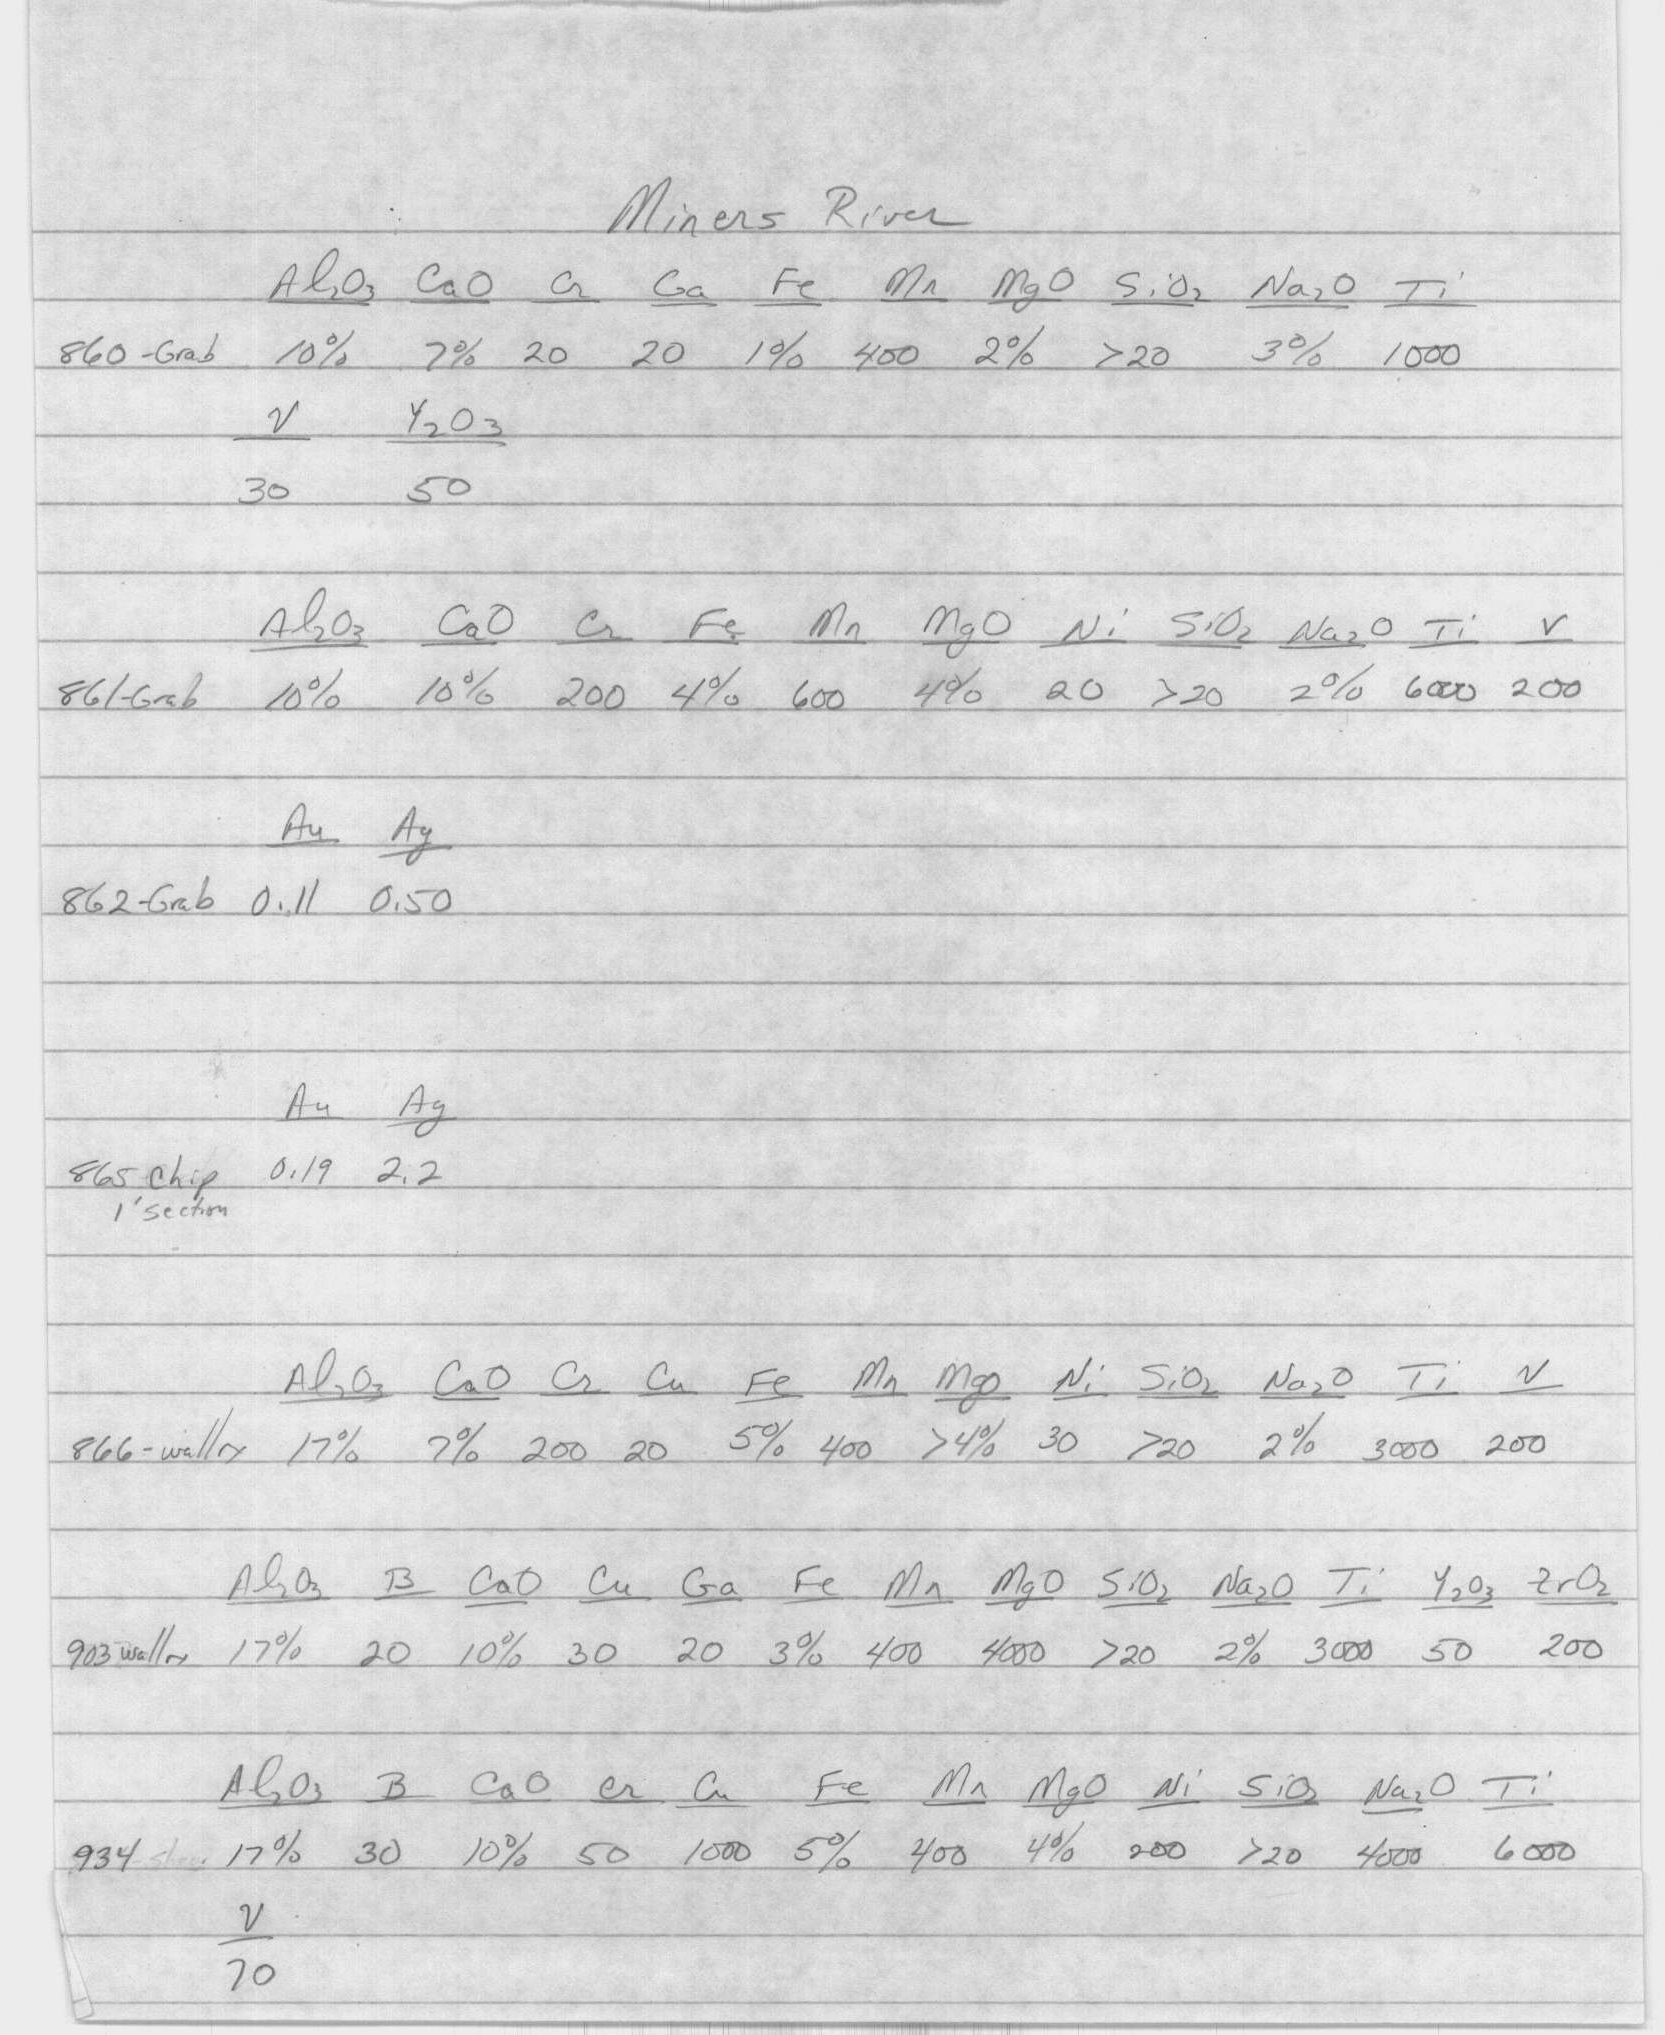 Miners River
Al2O3 CaO Cr Ga Fe Mn MgO SiO2 Na2O Ti
860-Grab 10% 7% 20 20 1% 400 2% >20 3% 1000
V Y2O3
30 50
Al2O3 CaO Cr Fe Mn MgO Ni SiO2 Na2O Ti V
861-Grab 10% 10% 200 4% 600 4% 20 >20 2% 6000 200
Au Ag
862-Grab 0.11 0.50
Au Ag
865 Chip 0.19 2.2
1' section
Al2O3 CaO Cr Cu Fe Mn MgO Ni SiO2 Na2O Ti V
866-wallrx 17% 7% 200 20 5% 400 >4% 30 >20 2% 3000 200
Al2O3 B CaO Cu Ga Fe Mn MgO SiO2 Na2O Ti Y2O3 ZrO2
903-wallrx 17% 20 10% 30 20 3% 400 4000 >20 2% 3000 50 200
Al2O3 B CaO Cr Cu Fe Mn MgO Ni SiO2 Na2O Ti
934 17% 30 10% 50 1000 5% 400 4% 200 >20 4000 6000
V
70